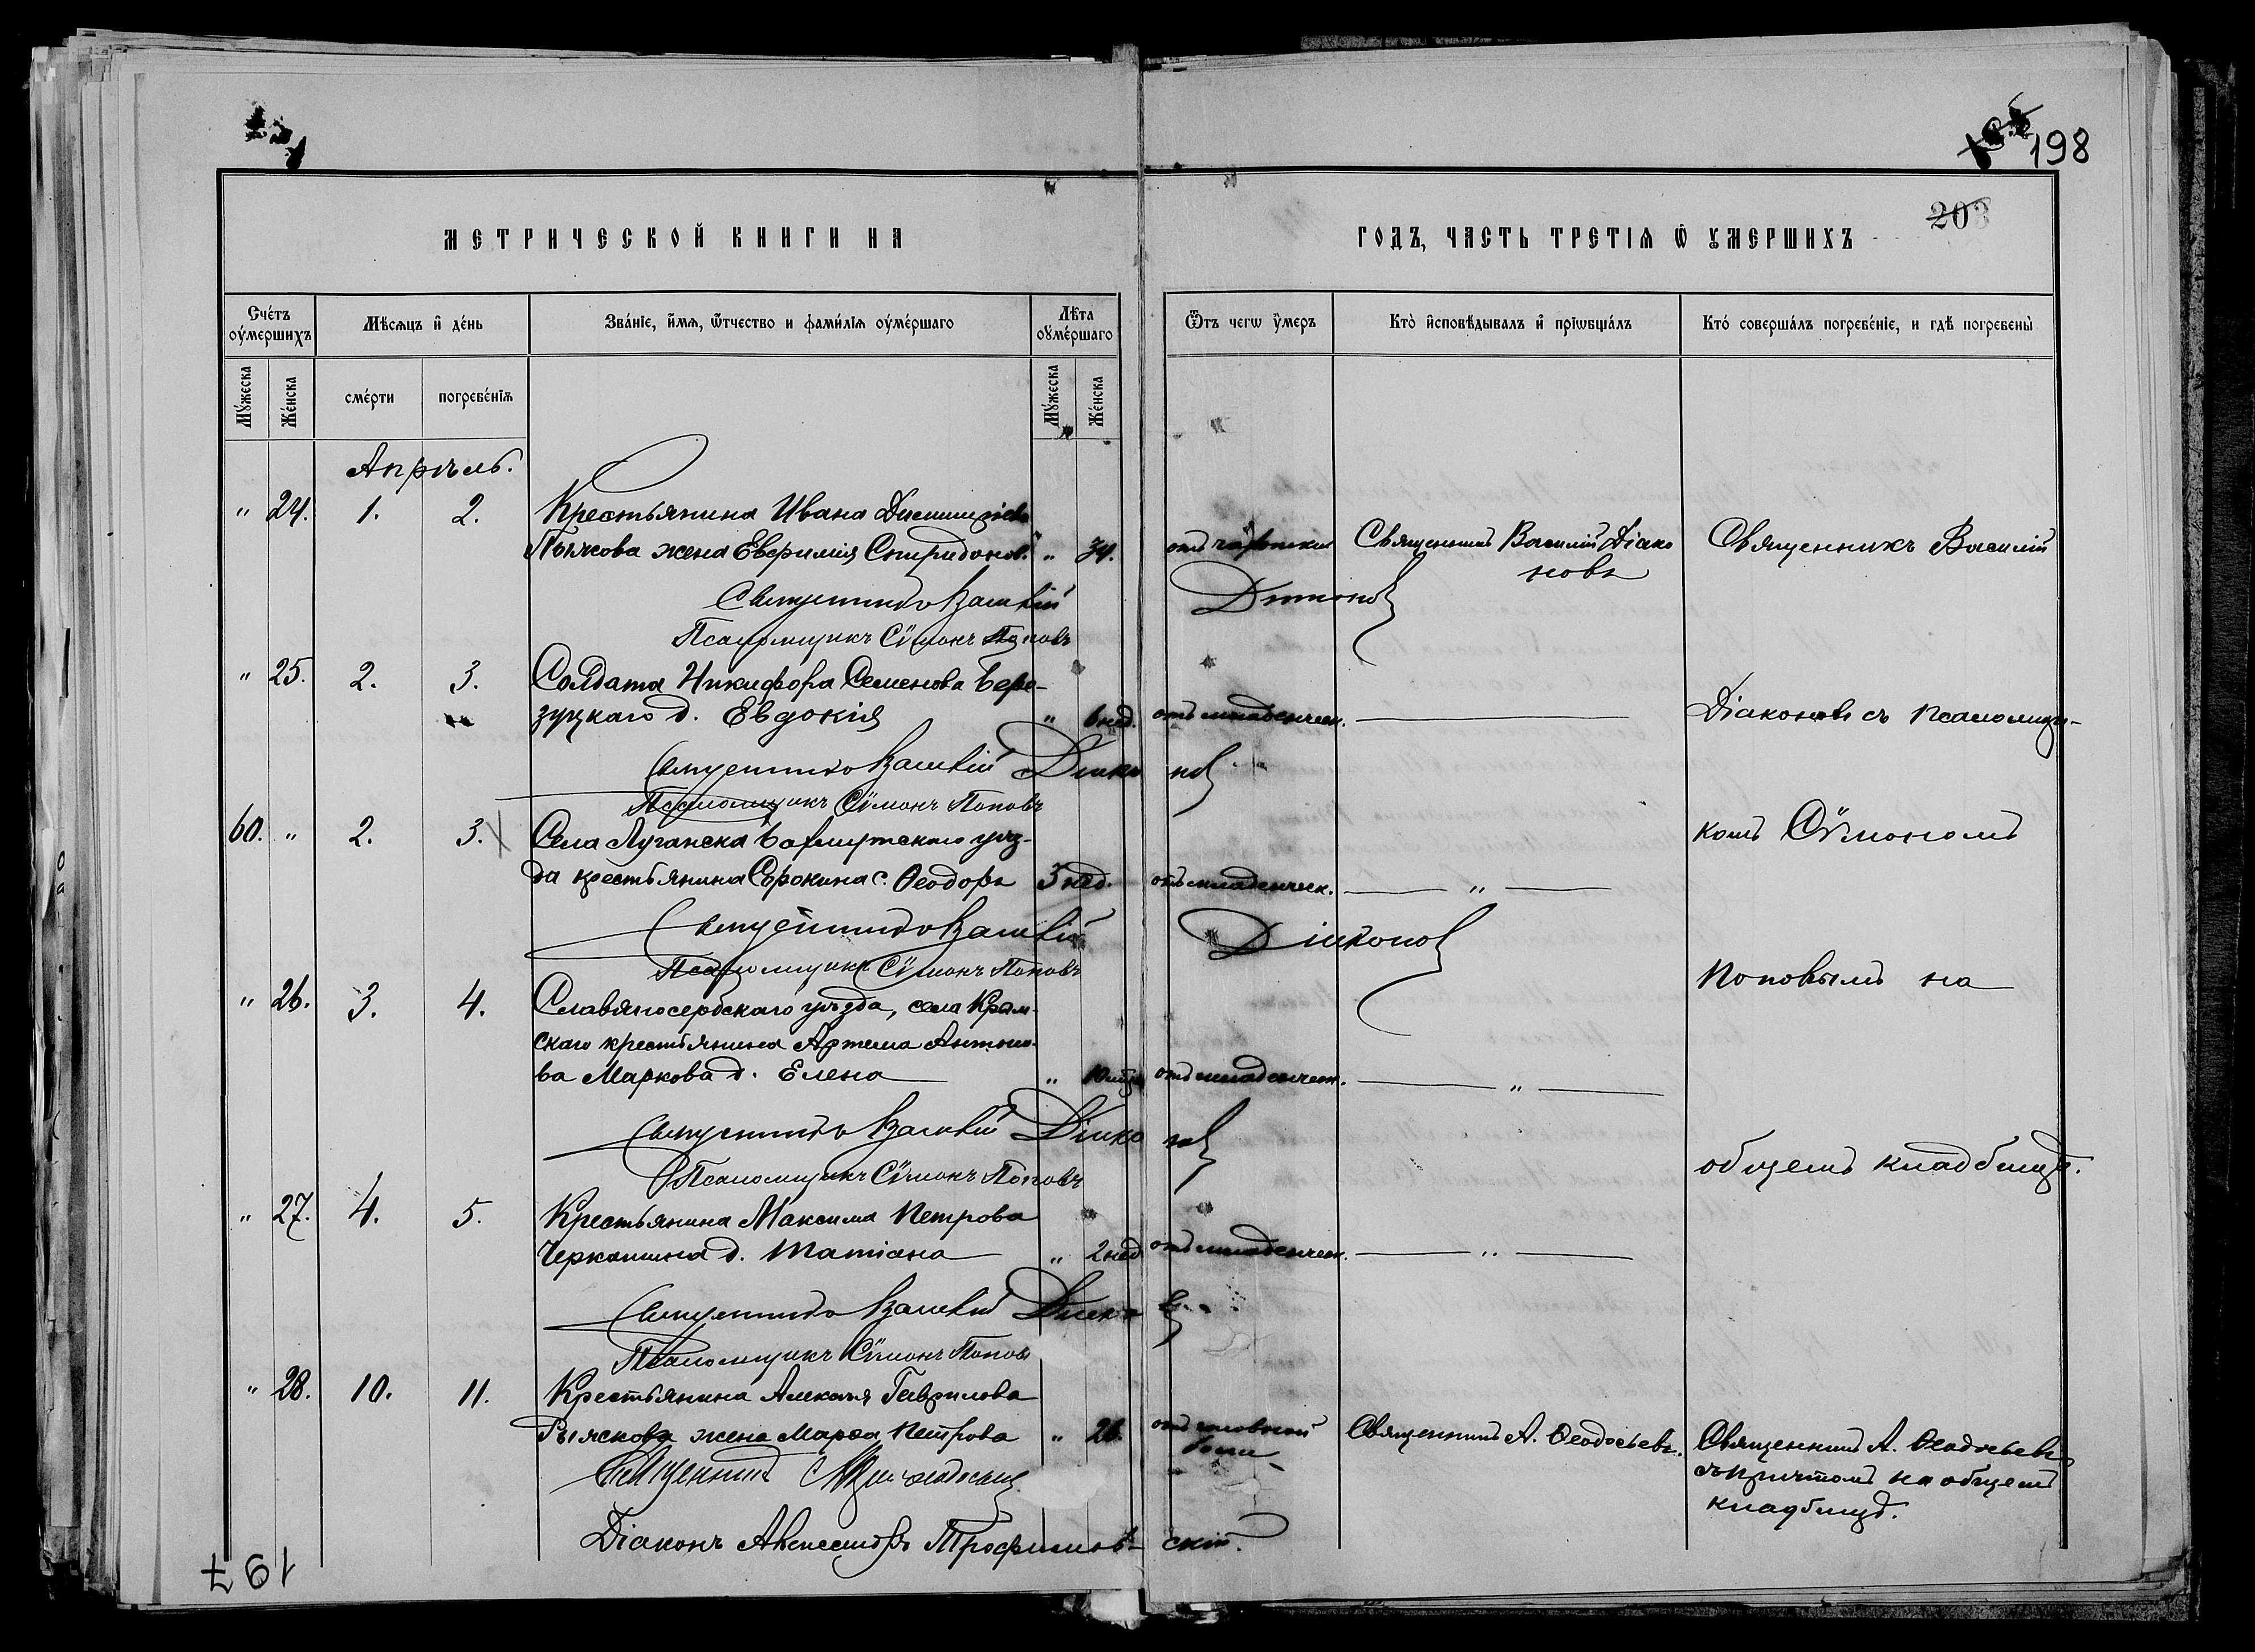 198
203
МЕТРИЧЕСКОЙ КНИГИ НА
ГОДЪ, ЧАСТЬ ТРЕТІѦ Ѡ ОУМЕРШИХЪ
Счетъ оумершихъ
Мѣсѧцъ и день
Званіе, имѧ, ѿчество и фамиліѧ оумершаго
Лѣта оумершаго
Ѿтъ чегѡ умеръ
Кто исповѣдывалъ и пріѡбщалъ
Кто совершалъ погребеніе, и гдѣ погребены
Мужеска
Женска
смерти
погребеніѧ
Мужеска
Женска
Апрѣль.
" 24. 1. 2. Крестьянина Ивана
жена Евфимія Спиридонов. " 34. отъ Священникъ Василій Діако Священникъ Василій
новъ
Священникъ Василій Діаконов
Псаломщикъ Сѵмонъ Поповъ
" 25. 2. 3. Солдата Никифора Семенова Бере-
зуцкаго д. Евдокія " 6 нед. отъ младенческ. Діаконовъ съ псаломщи-
Священникъ Василій Діаконов
Псаломщикъ Сѵмонъ Поповъ
60. " 2. 3. Села Луганска Бахмутскаго уѣз- комъ Сѵмономъ
да крестьянина Сорокина с. Ѳеодоръ 3 нед. отъ младенческ. "
Священникъ Василій Діаконов
Псаломщикъ Сѵмонъ Поповъ
Поповымъ на
" 26. 3. 4. Славяносербскаго уѣзда, села Крым-
скаго крестьянина Артема Антоно-
ва Маркова д. Елена " отъ младенческ. "
Священникъ Василій Діаконов
Псаломщикъ Сѵмонъ Поповъ
общемъ кладбищѣ.
" 27. 4. 5. Крестьянина Максима Петрова
Черкашина д. Татіана " 2 нед. отъ младенческ. "
Священникъ Василій
Псаломщикъ Сѵмонъ Поповъ
" 28. 10. 11. Крестьянина Алексѣя Гаврилова
жена Марѳа Петрова " 26. отъ головной Священникъ А. Ѳеодосьевъ. Священникъ А. Ѳеодосьевъ
боли съ причтомъ на общемъ
кладбищѣ.
Священникъ
Діаконъ Александръ Трофимовскій.
197